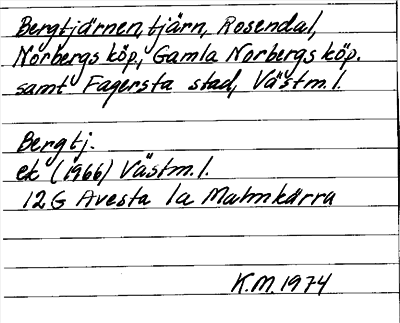 Bergtjärnen, tjärn, Rosendal,
Norbergs köp., Gamla Norbergs köp.
samt Fagersta stad, Västm. l.
Bergtj.
ek (1966) Västm. l.
12G Avesta 1a Malmkärra
K.M. 1974